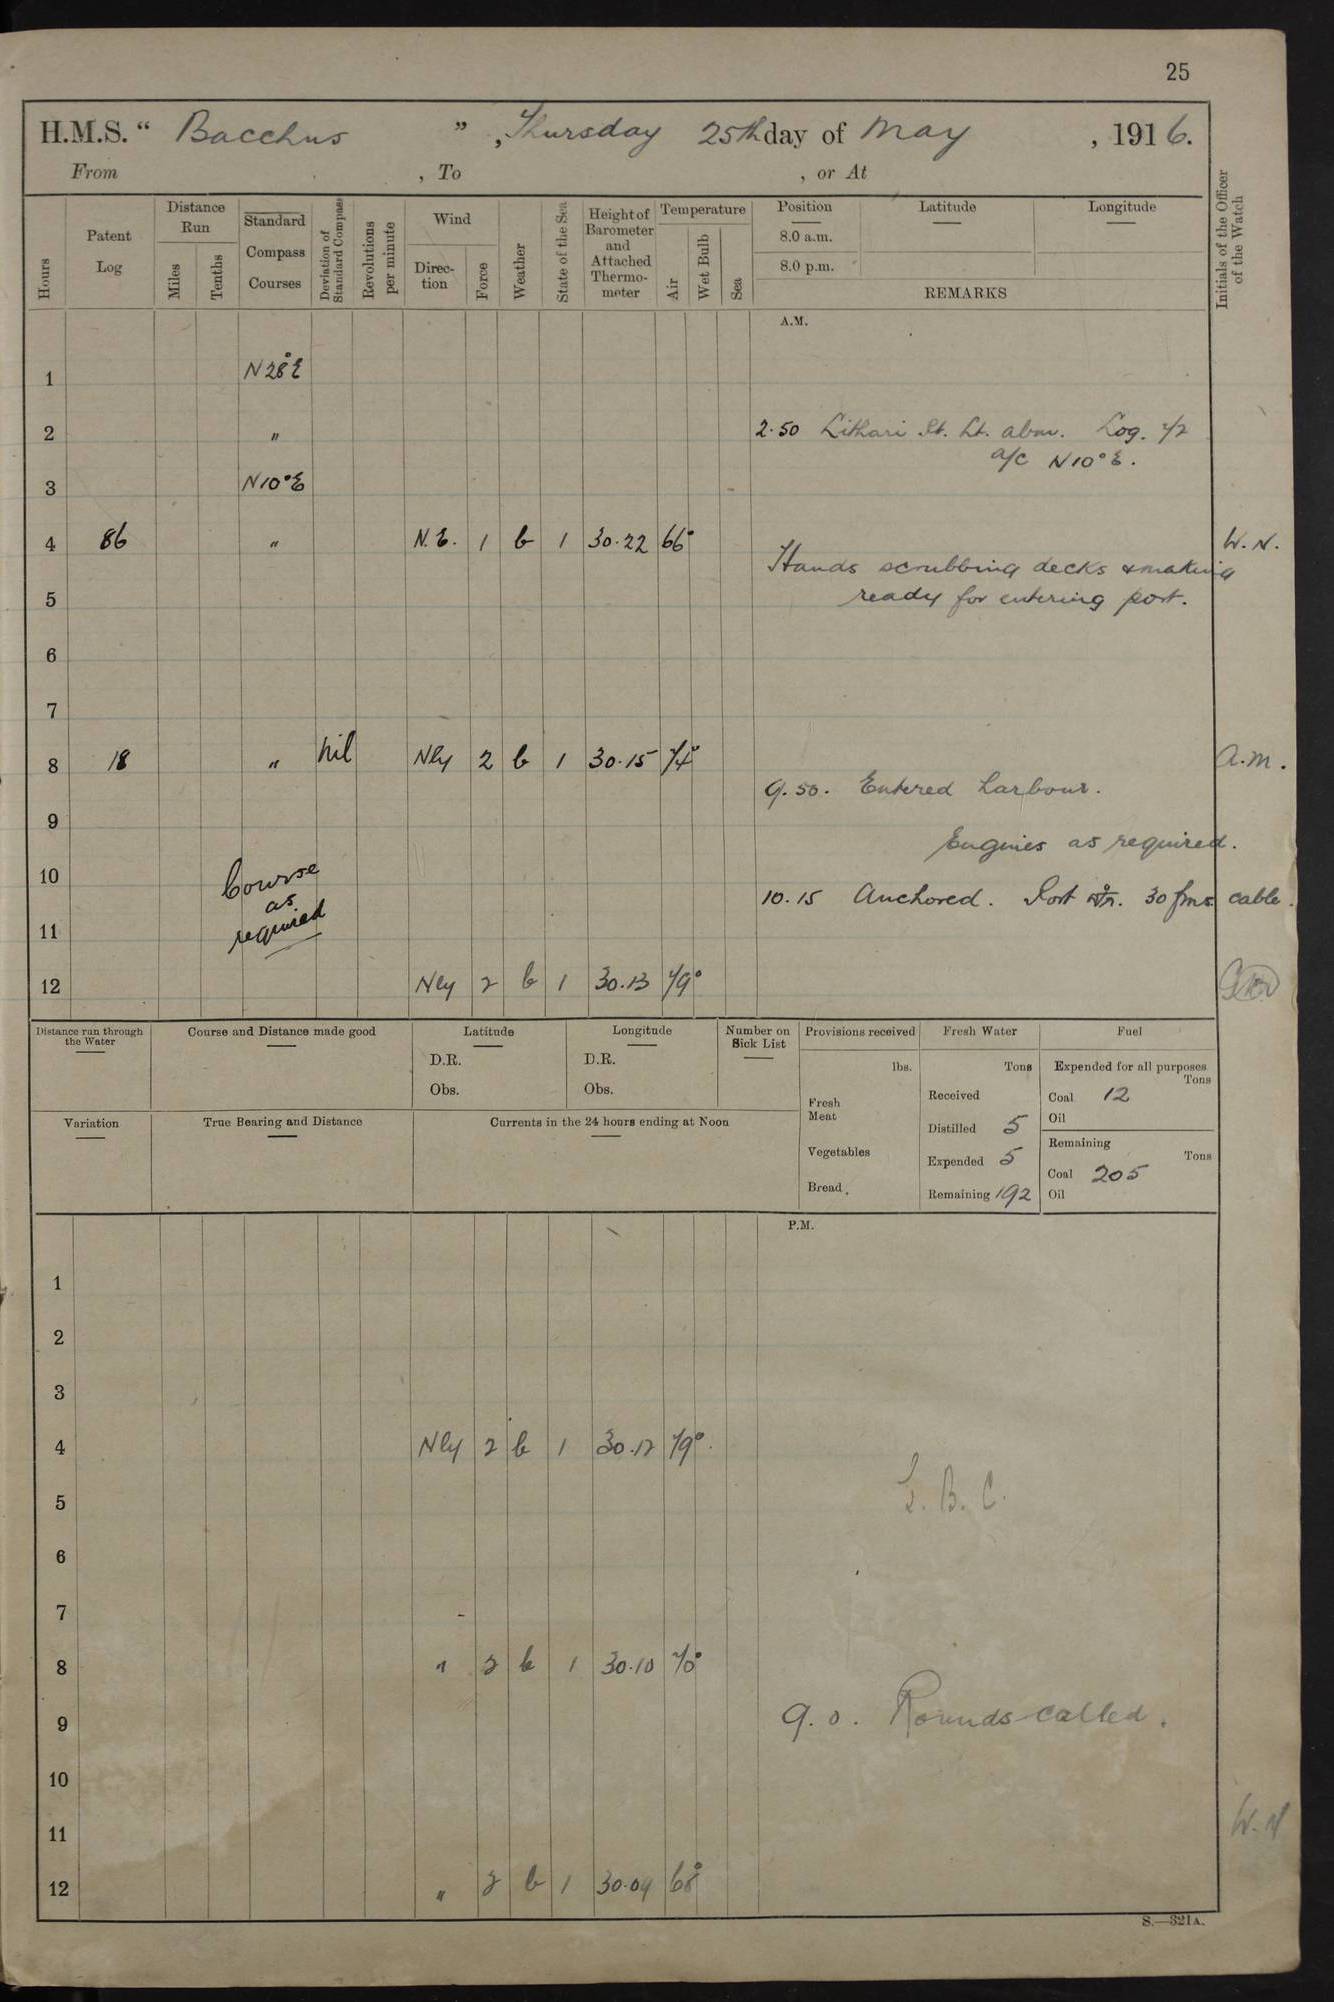 25
H.M.S. “ Bacchus ” , Thursday 25th day of May , 1916.
From , To , or At
Hours
Patent Log
Distance Run
Miles
Tenths
Standard Compass Courses
Deviation of Standard Compass
Revolutions per minute
Wind
Direc-tion
Force
Weather
State of the Sea
Height of Barometer and Attached Thermo-meter
Temperature
Air
Wet Bulb
Sea
Position
8.0 a.m.
8.0 p.m.
Latitude
Longitude
REMARKS
Initials of the Officer of the Watch
A.M.
1 N 28° E
2 " 2.50 Lithari Pt. Lt. abm. Log. 72
a/c N 10° E.
3 N 10° E
4 86 " N.E. 1 b 1 30.22 66° W.N.
Hands scrubbing decks & making
5 ready for entering port.
6
7
8 18 " nil Nly 2 b 1 30.15 74° A.M.
9.50. Entered harbour.
9
Engines as required.
10 Course
10.15 Anchored. Port Ar. 30 fms cable.
as
11 required
12 Nly 2 b 1 30.13 79°
Distance run through the Water
Course and Distance made good
Latitude
D.R.
Obs.
Longitude
D.R.
Obs.
Number on Sick List
Provisions received
lbs.
Fresh Meat
Vegetables
Bread
Fresh Water
Tons
Received
Distilled 5
Expended 5
Remaining 192
Fuel
Expended for all purposes
Tons
Coal 12
Oil
Remaining
Tons
Coal 205
Oil
Variation
True Bearing and Distance
Currents in the 24 hours ending at Noon
P.M.
1
2
3
4 Nly 2 b 1 30.12 79°
5 B. C.
6
7
8 " 2 b 1 30.10 70°
9 9.0. Rounds called.
10
11 W.N
12 " 2 b 1 30.09 68°
S.—321A.